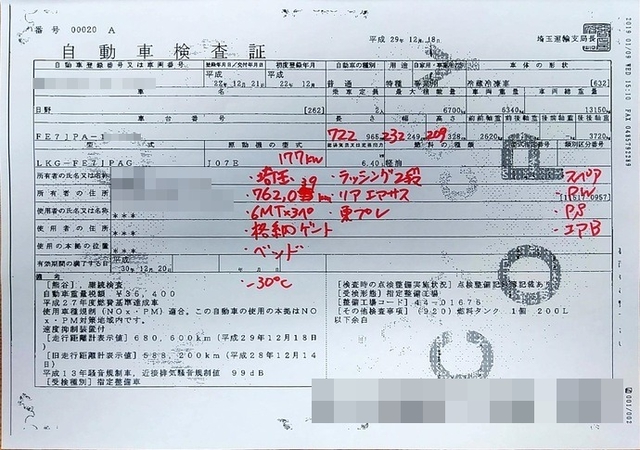 番号 00020 A
平成 29年 12月 18日
埼玉運輸支局長
自動車検査証
自動車登録番号又は車両番号 登録年月日/交付年月日 初度登録年月 自動車の種別 用途 自家用・事業用の別 車体の形状
平成 22年 12月 21日 平成 22年 12月 普通 特種 冷蔵冷凍車 [632]
車名 乗車定員 最大積載量 車両重量 車両総重量
日野 [262] 2人 6700 6340 13150
車台番号 長さ 幅 高さ 前前軸重 前後軸重 後前軸重 後後軸重
FE7JPA-1 722 965 232 249 209 328 2620 3720
型式 原動機の型式 燃料の種類 型式指定番号 類別区分番号
177kw
LKG-FE7JPAG J07E 6.40 軽油
所有者の氏名又は名称 ・埼玉 ・ラッシング2段 スペア
所有者の住所 762,0 km ・リアエアサス ・PW
使用者の氏名又は名称 *** ・6MT ・東プレ ・PS
使用者の住所 *** ・格納ゲート ・エアB
使用の本拠の位置 *** ・ベンド
有効期間の満了する日 平成 30年 12月 20日
-30℃
備考
[熊谷],継続検査
自動車重量税額 ¥36,400
平成27年度燃費基準達成車
使用車種規制(NOx・PM)適合,この自動車の使用の本拠はNOx・PM対策地域内です。
速度抑制装置付
[走行距離計表示値] 680,600km(平成29年12月18日)
[旧走行距離計表示値] 588,200km(平成28年12月14日)
平成13年騒音規制車,近接排気騒音規制値 99dB
[受検種別]指定整備車
[検査時の点検整備実施状況]点検整備記録簿記載あり
[受検形態]指定整備工場
[整備工場コード]44-01675
[その他検査事項](920)燃料タンク 1個 200L
以下余白
001/002